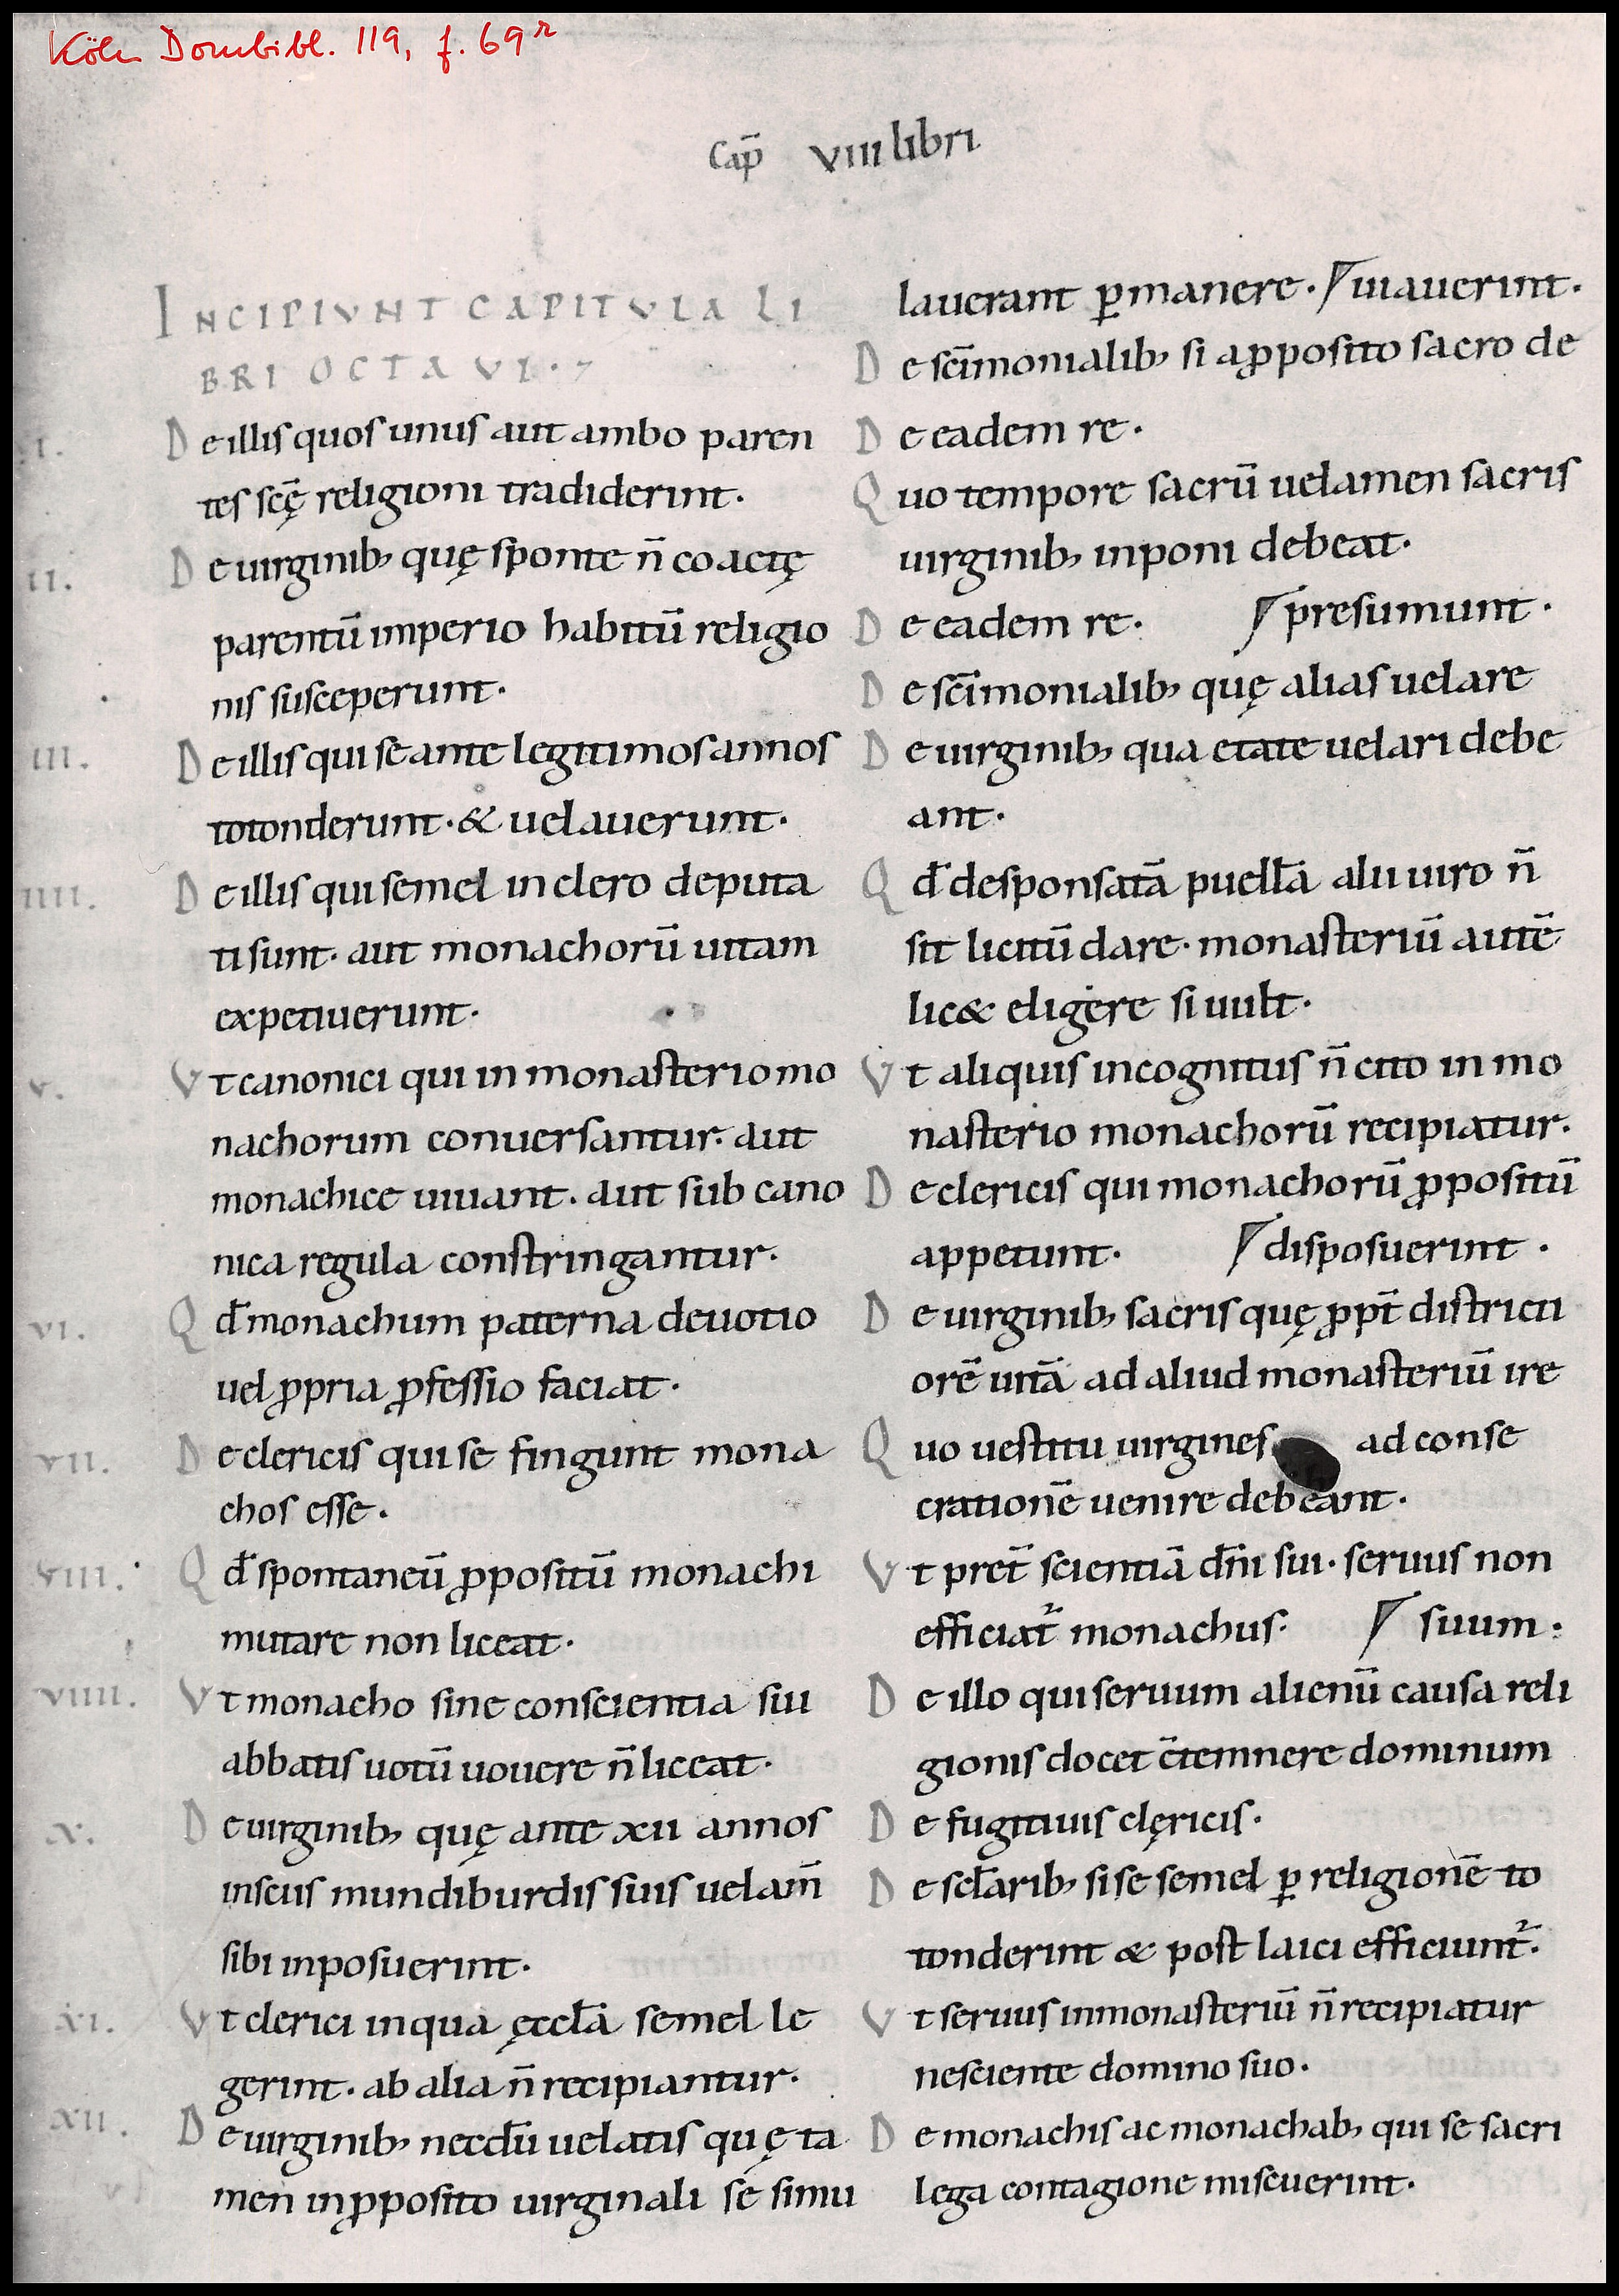 Köln Dombibl. 119, f. 69r
Cap̄ VIII libri
INCIPIUNT CAPITULA LI
BRI OCTAVI.
I. De illis quos unus aut ambo paren
tes scę̄ religioni tradiderint.
II. De uirginib; quę sponte n̄ coactę
parentū imperio habitū religio
nis susceperunt.
III. De illis qui se ante legitimos annos
totonderunt. & uelauerunt.
IIII. De illis qui semel in clero deputa
ti sunt. aut monachorū uitam
expetiuerunt.
V. Vt canonici qui in monasterio mo
nachorum conuersantur. aut
monachice uiuant. aut sub cano
nica regula constringantur.
VI. Qđ monachum paterna deuotio
uel ꝓpria ꝓfessio faciat.
VII. De clericis qui se fingunt mona
chos esse.
VIII. Qđ spontaneū ꝓpositū monachi
mutare non liceat.
VIIII. Vt monacho sine conscientia sui
abbatis uotū uouere n̄ liceat.
X. De uirginib; quę ante xii annos
insciis mundiburdis suis uelam̄
sibi inposuerint.
XI. Vt clerici in qua ęccłā semel le
gerint. ab alia n̄ recipiantur.
XII. De uirginib; necdū uelatis quę ta
men in ꝓposito uirginali se simu
lauerant ꝑmanere. uiauerint.
De sc̄imonialib; si a ꝓposito sacro de
De eadem re.
Quo tempore sacrū uelamen sacris
uirginib; inponi debeat.
De eadem re. presumunt.
De sc̄imonialib; quę alias uelare
De uirginib; qua etate uelari debe
ant.
Qđ desponsatā puellā alii uiro n̄
sit licitū dare. monasteriū autē
lic& eligere si uult.
Vt aliquis incognitus n̄ cito in mo
nasterio monachorū recipiatur.
De clericis qui monachorū ꝓpositū
appetunt. disposuerint.
De uirginib; sacris quę ꝓpt̄ districti
orē uitā ad aliud monasteriū ire
Quo uestitu uirgines ad conse
crationē uenire debeant.
Vt pret̄ scientiā dn̄i sui. seruus non
efficiat᷑ monachus. suum.
De illo qui seruum alienū causa reli
gionis docet c̄temnere dominum
De fugitiuis clęricis.
De scłarib; si se semel ꝑ religionē to
tonderint & post laici efficiunt᷑.
Vt seruus in monasteriū n̄ recipiatur
nesciente domino suo.
De monachis ac monachab; qui se sacri
lega contagione miscuerint.